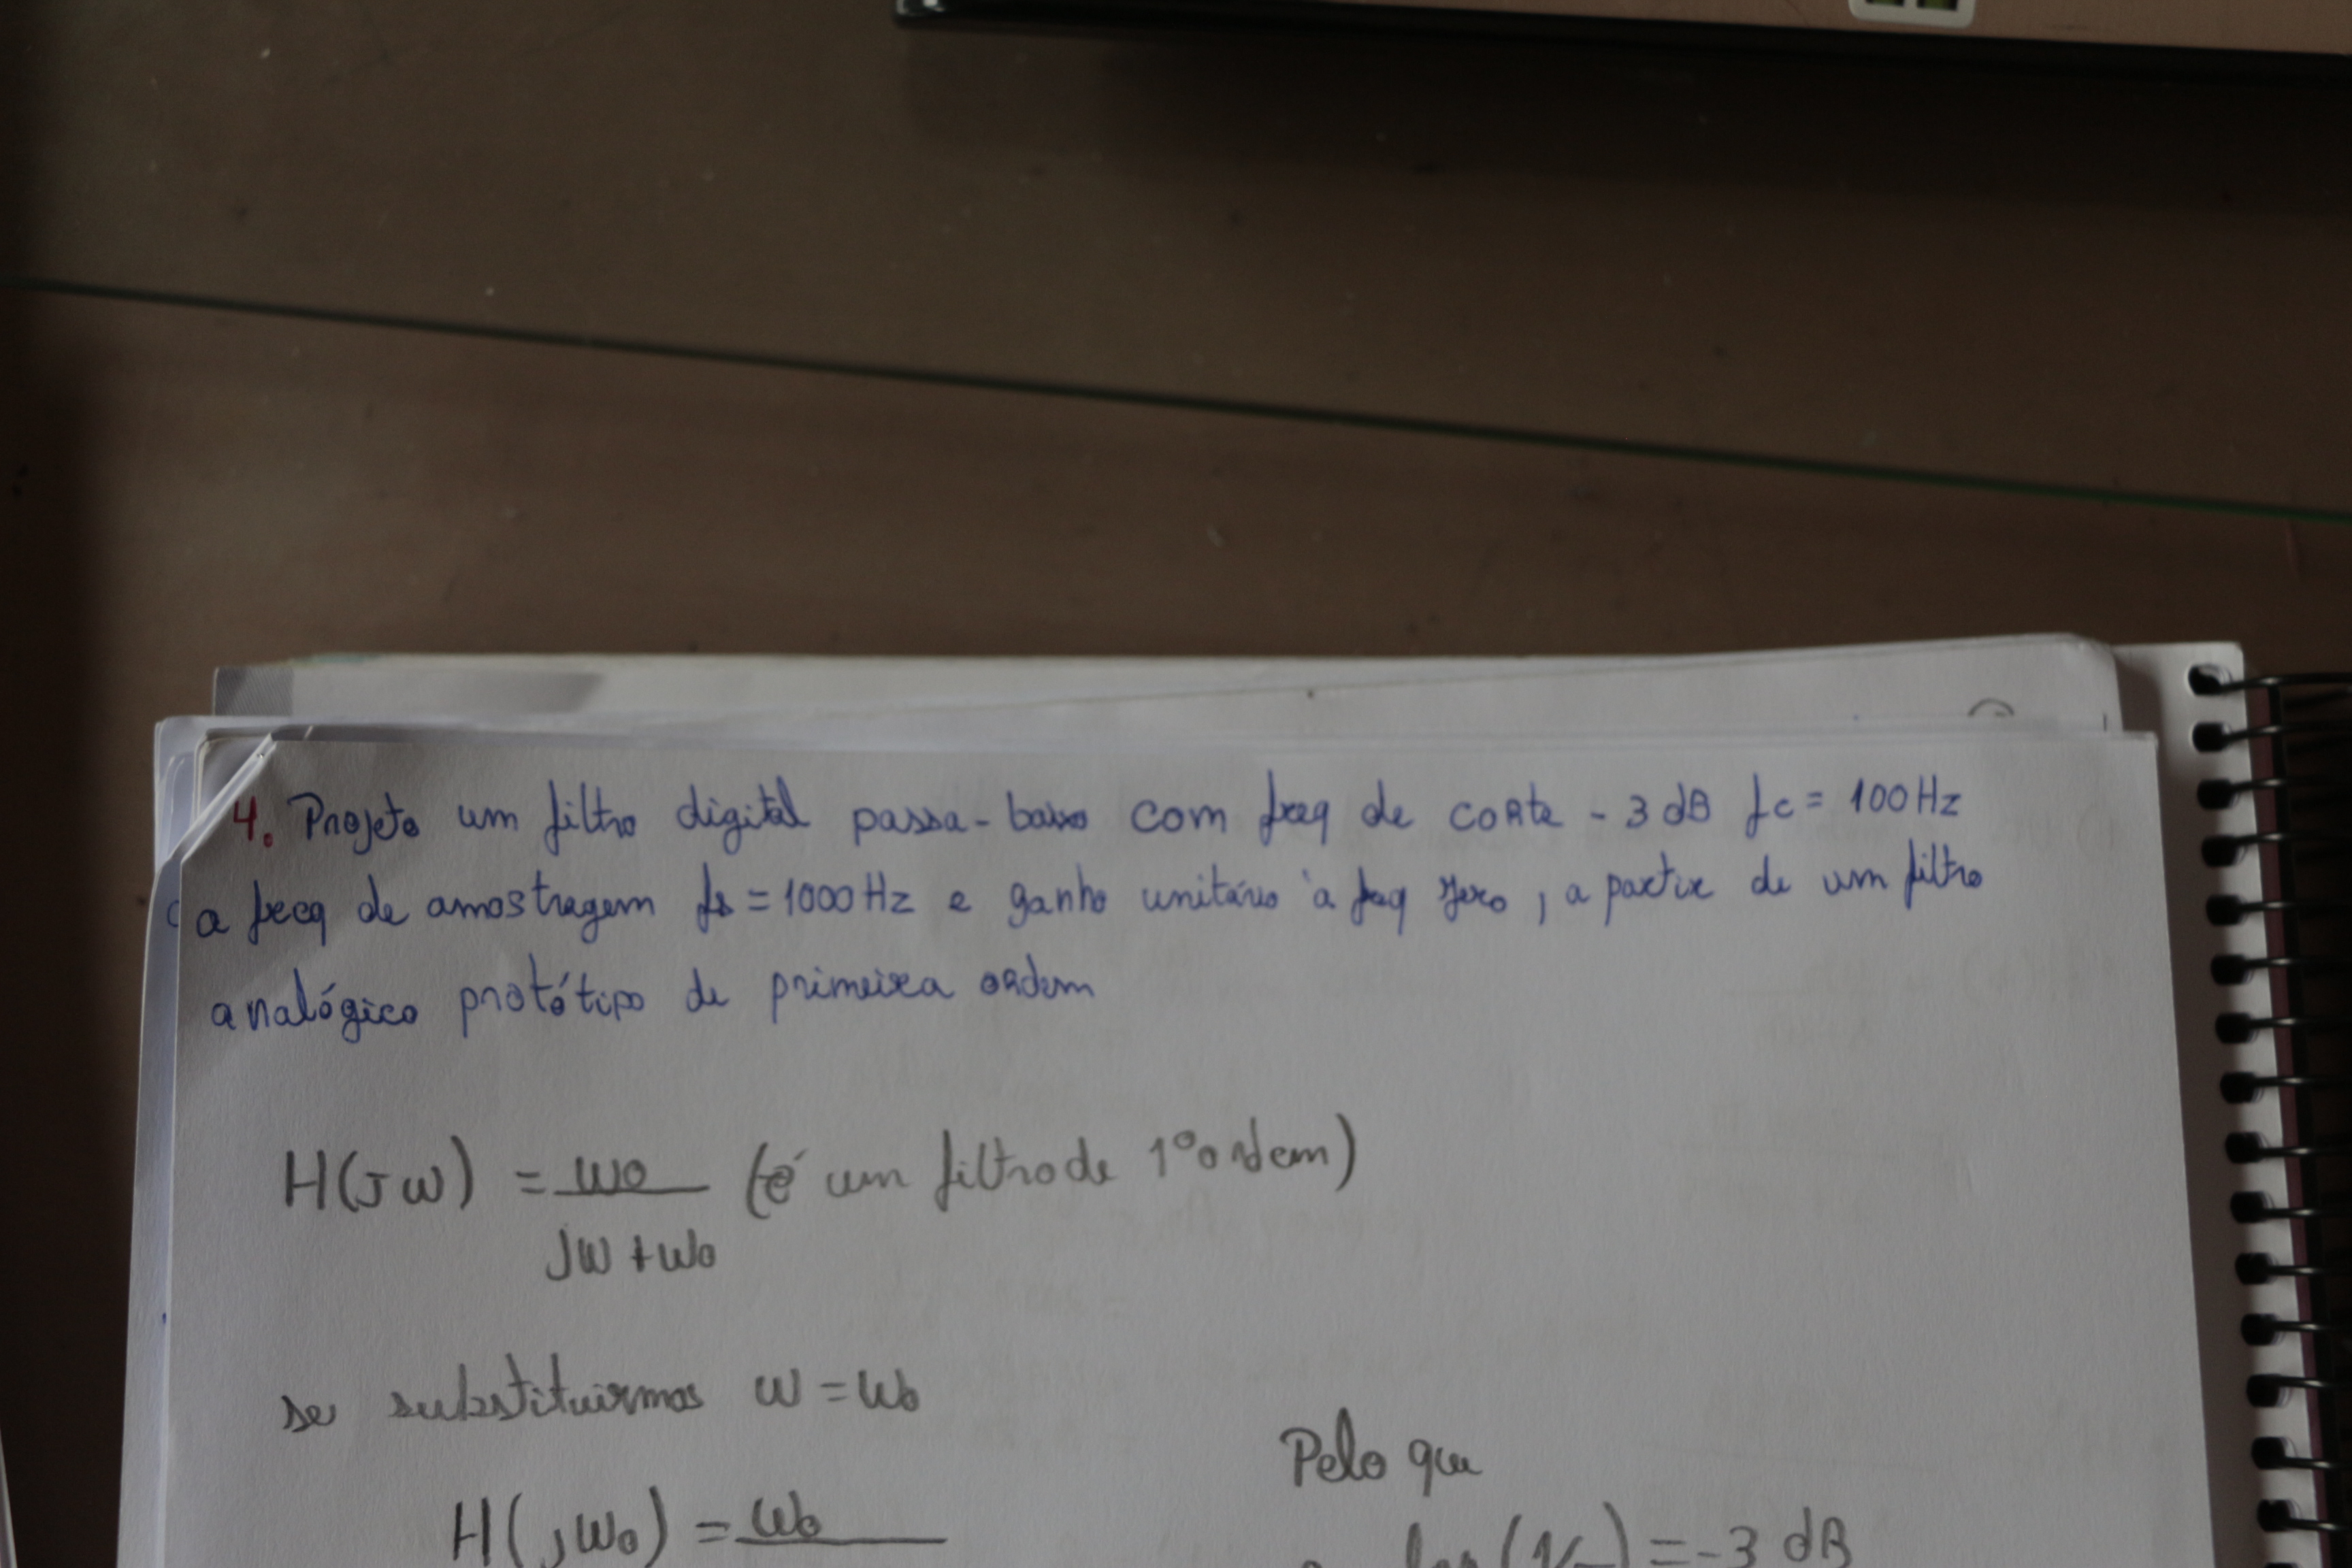 4. Projeto um filtro digital passa-baixo com freq de corte -3 dB fc = 100 Hz
a freq de amostragem fs = 1000 Hz e ganho unitário à freq zero, a partir de um filtro
analógico protótipo de primeira ordem
H(jω) = ω0 / (jω + ω0) (é um filtro de 1º ordem)
se substituirmos ω = ω0
Pelo que
H(jω0) = ω0
= -3 dB